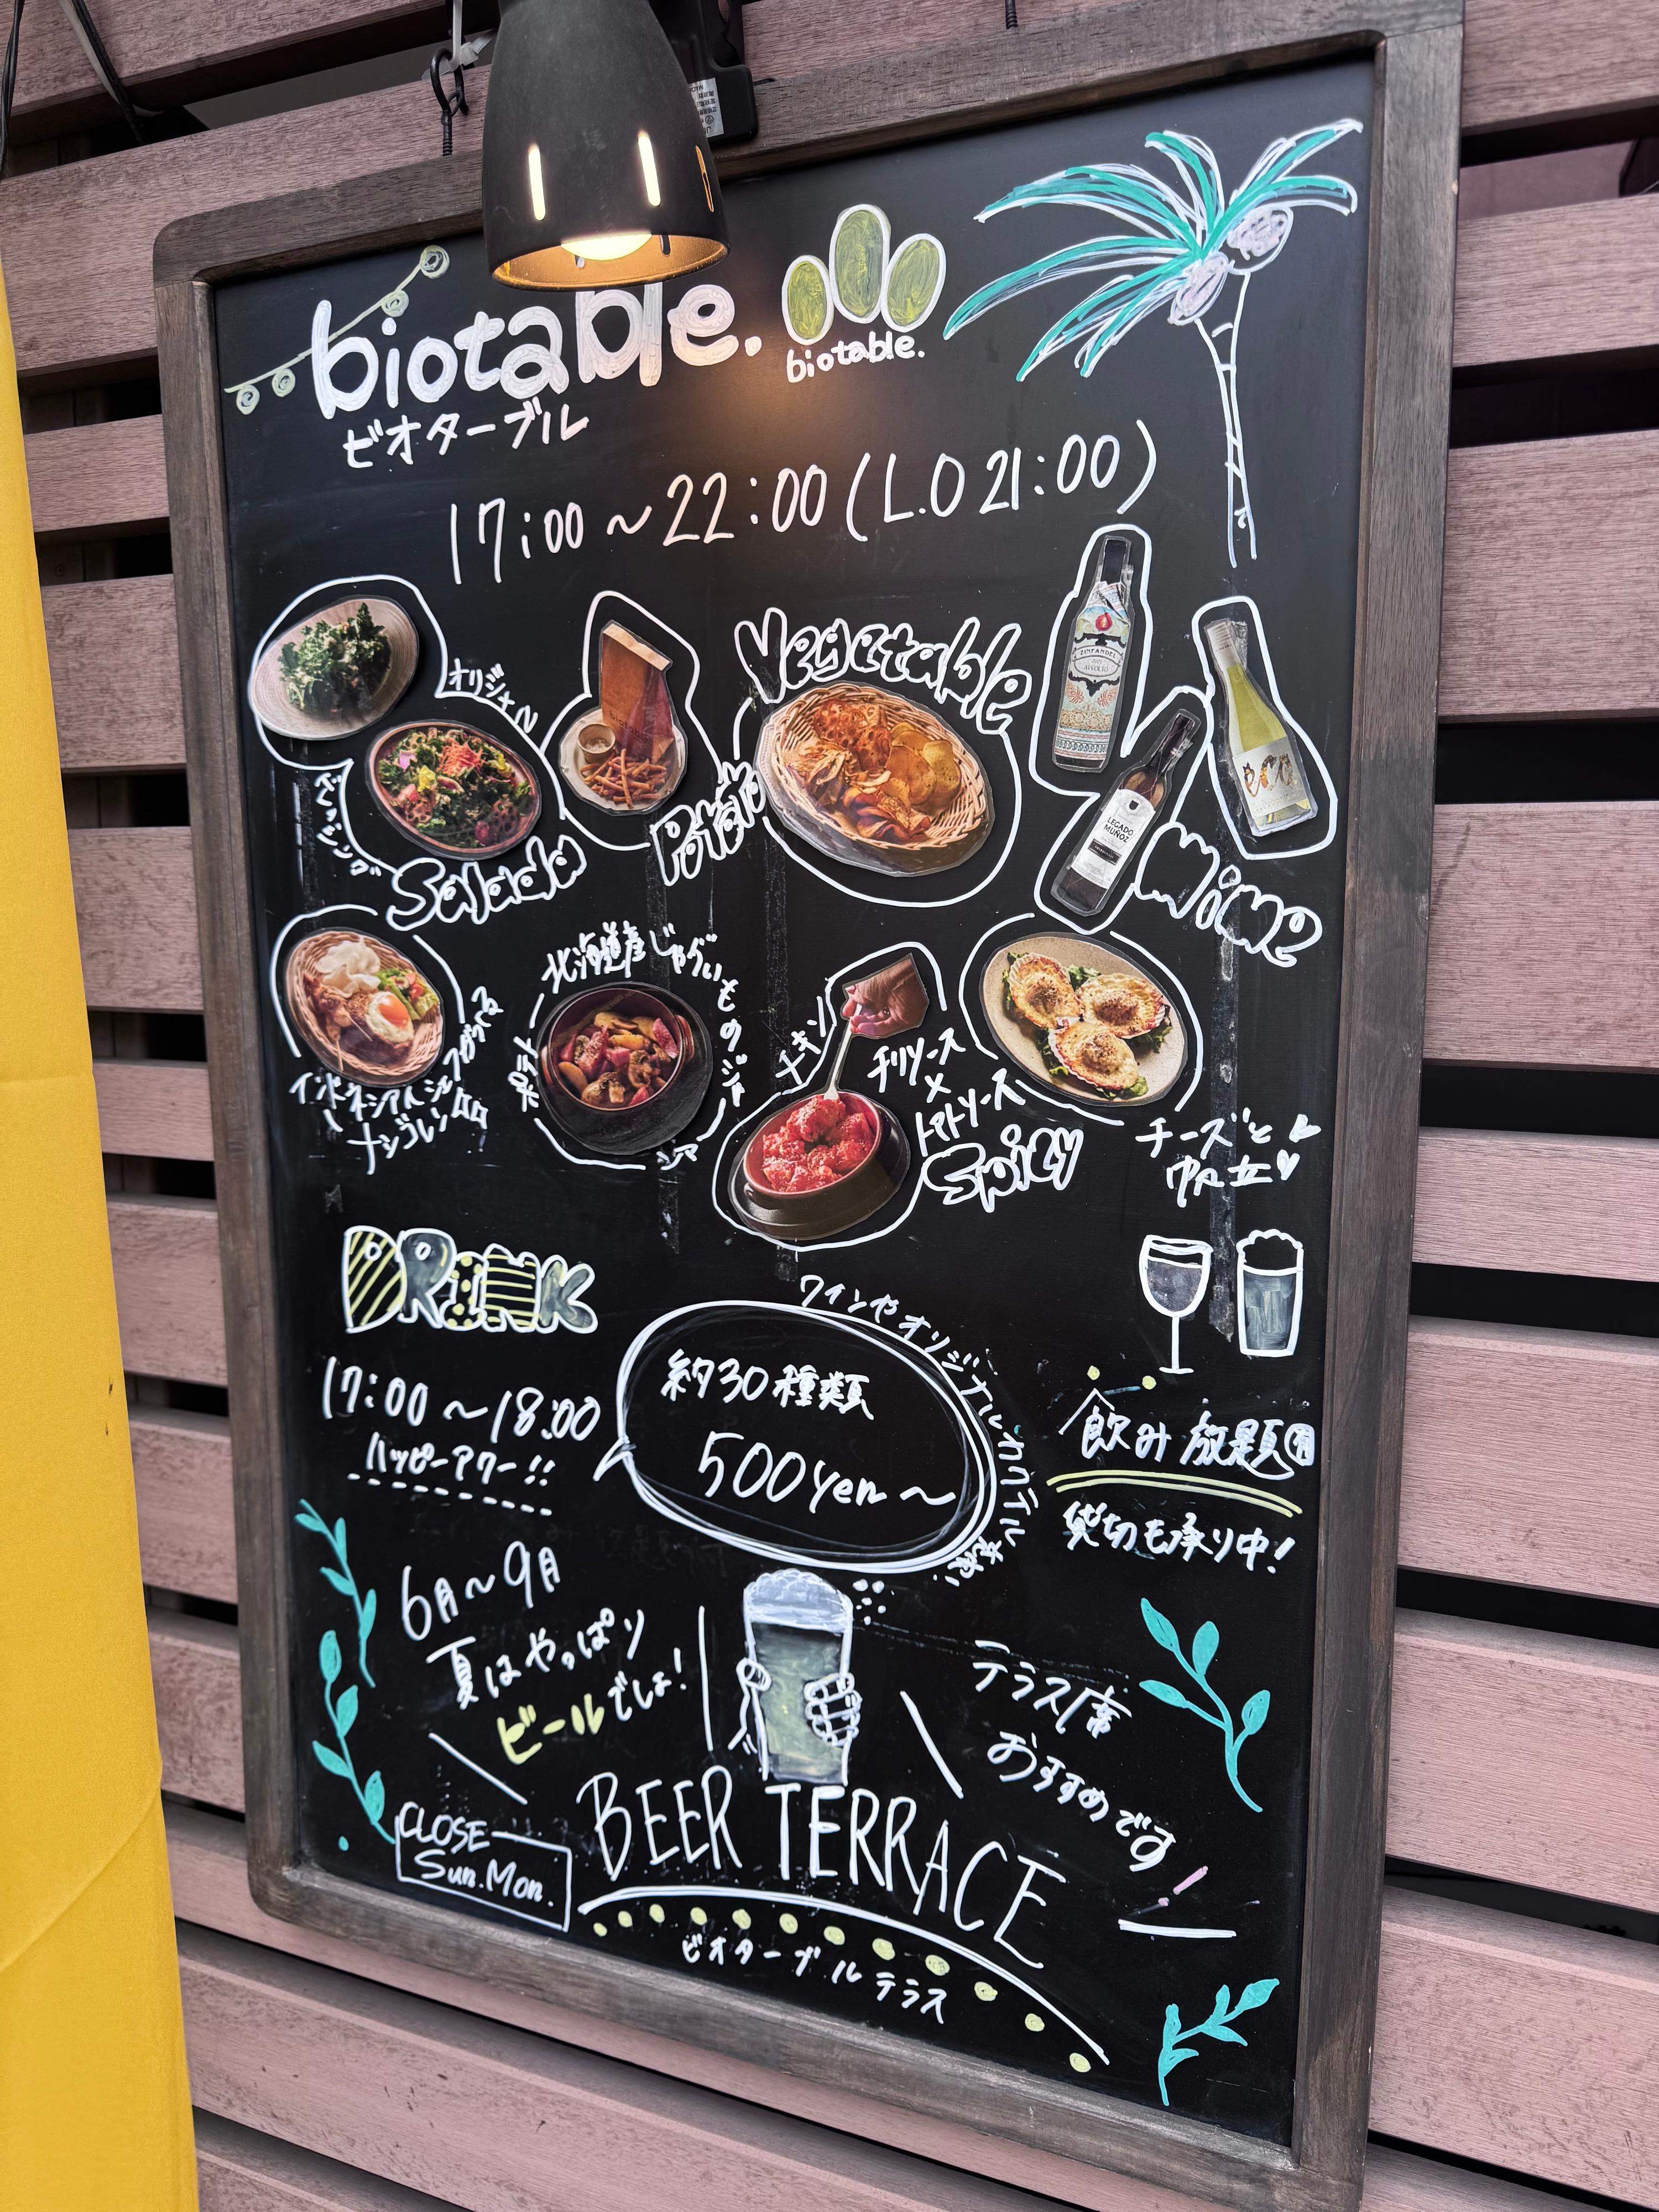 biotable.
biotable.
ビオターブル
17:00~22:00(L.O 21:00)
オリジナル
ドレッシング
Salada
Potato
Vegetable
ZINFANDEL
LEGADO
MUÑOZ
eco
Wine
インドネシア人シェフがつくる
ナシゴレン
北海道産じゃがいものジャ
ポテト
チキン
チリソース
×
トマトソース
Spicy
チーズと
帆立
DRINK
17:00~18:00
ハッピーアワー!!
約30種類
500yen~
ワインやオリジナルカクテル
飲み放題有
貸切も承り中!
6月~9月
夏はやっぱり
ビールでしょ!
テラス席
おすすめです!
BEER TERRACE
CLOSE
Sun.Mon.
ビオターブルテラス